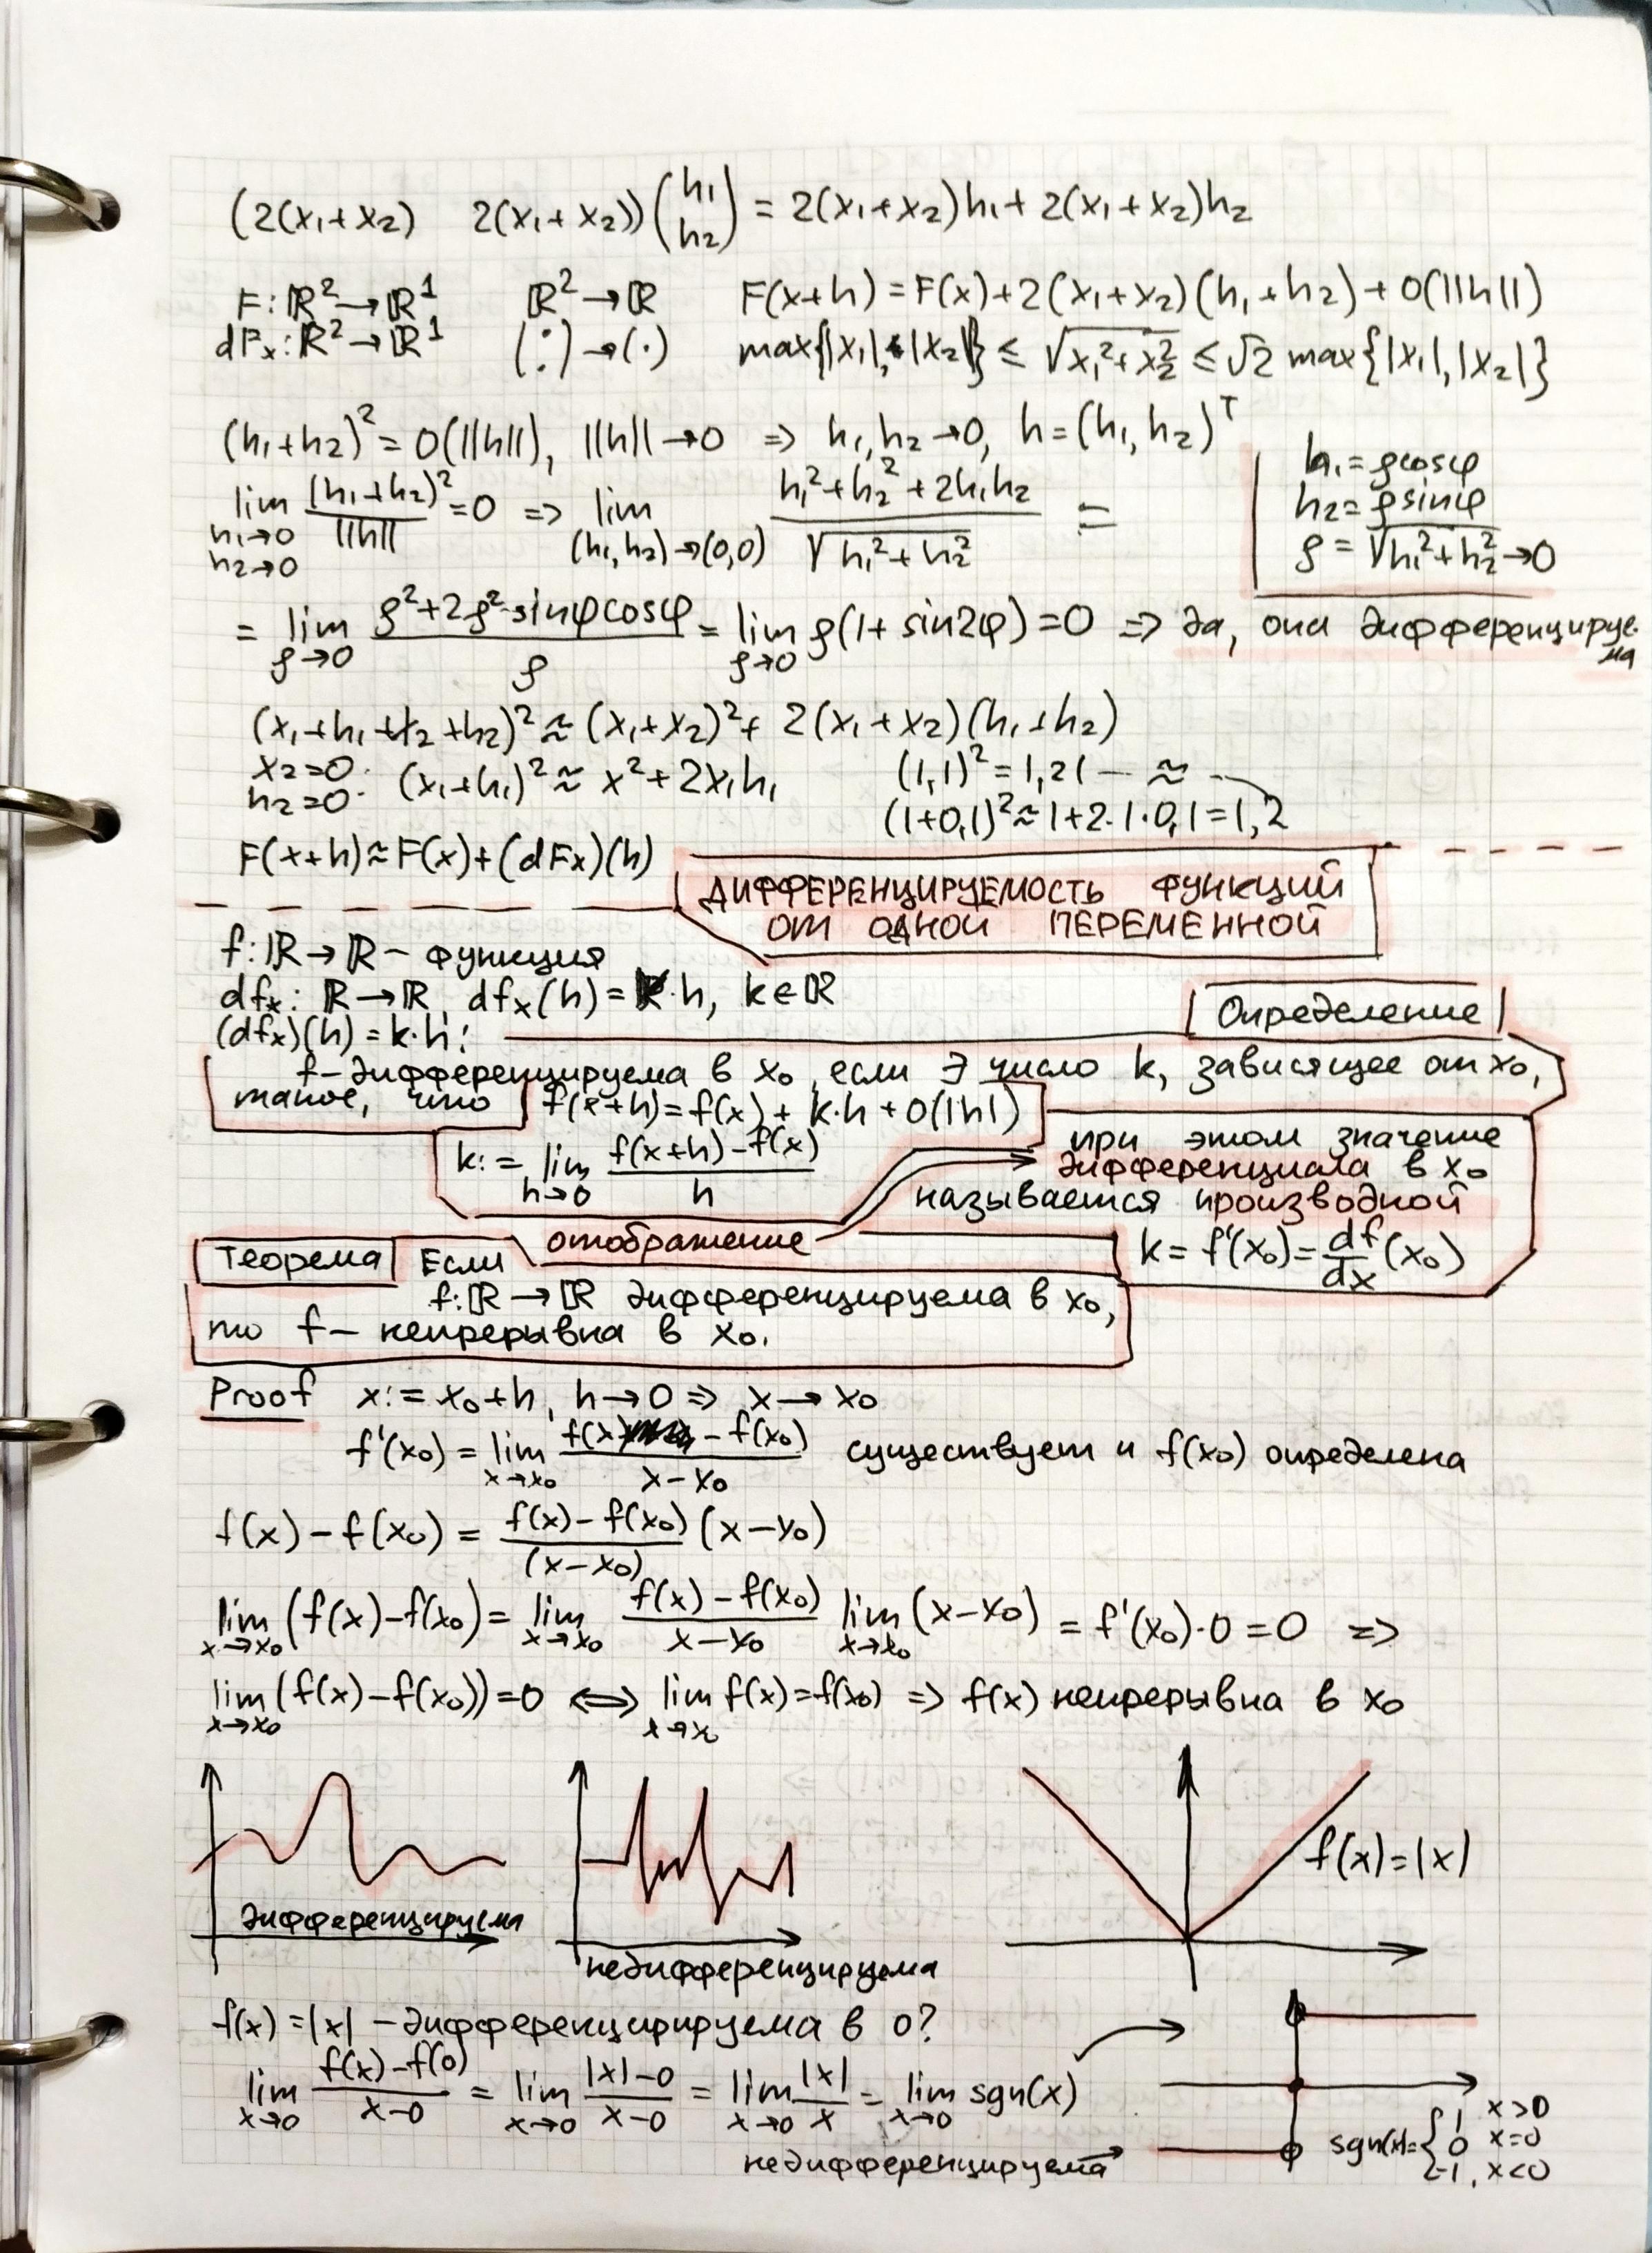 (2(x₁+x₂)   2(x₁+x₂))(h₁ h₂) = 2(x₁+x₂)h₁+2(x₁+x₂)h₂
F: ℝ²→ℝ¹   ℝ²→ℝ   F(x+h)=F(x)+2(x₁+x₂)(h₁+h₂)+o(||h||)
dFₓ: ℝ²→ℝ¹   (:)→(·)   max{|x₁|,|x₂|} ≤ √(x₁²+x₂²) ≤ √2 max{|x₁|,|x₂|}
(h₁+h₂)²=o(||h||), ||h||→0 ⇒ h₁,h₂→0, h=(h₁,h₂)ᵀ
h₁=ρcosφ
h₂=ρsinφ
ρ=√(h₁²+h₂²)→0
lim h₁→0 h₂→0 (h₁+h₂)²/||h|| =0 ⇒ lim (h₁,h₂)→(0,0) (h₁²+h₂²+2h₁h₂)/√(h₁²+h₂²) =
= lim ρ→0 (ρ²+2ρ²·sinφcosφ)/ρ = lim ρ→0 ρ(1+sin2φ)=0 ⇒ да, она дифференцируема
(x₁+h₁+x₂+h₂)² ≈ (x₁+x₂)²+ 2(x₁+x₂)(h₁+h₂)
x₂=0 h₂=0: (x₁+h₁)² ≈ x²+2x₁h₁   (1,1)²=1,21 — ≈
(1+0,1)²≈1+2·1·0,1=1,2
F(x+h)≈F(x)+(dFₓ)(h)
ДИФФЕРЕНЦИРУЕМОСТЬ ФУНКЦИЙ
ОТ ОДНОЙ ПЕРЕМЕННОЙ
f: ℝ→ℝ – функция
dfₓ: ℝ→ℝ, dfₓ(h)=k·h, k∈ℝ
(dfₓ)(h)=k·h!
Определение
f – дифференцируема в x₀, если ∃ число k, зависящее от x₀,
такое, что f(x+h)=f(x)+k·h+o(|h|)
k:= lim h→0 (f(x+h)-f(x))/h
при этом значение
дифференциала в x₀
называется производной
k=f'(x₀)=df/dx(x₀)
Теорема Если отображение
f: ℝ→ℝ дифференцируема в x₀,
то f – непрерывна в x₀.
Proof x:=x₀+h, h→0 ⇒ x→x₀
f'(x₀)= lim x→x₀ (f(x)-f(x₀))/(x-x₀) существует и f(x₀) определена
f(x)-f(x₀)= (f(x)-f(x₀))/(x-x₀) (x-x₀)
lim x→x₀ (f(x)-f(x₀)= lim x→x₀ (f(x)-f(x₀))/(x-x₀) lim x→x₀ (x-x₀) = f'(x₀)·0=0 ⇒
lim x→x₀ (f(x)-f(x₀))=0 ⟺ lim x→x₀ f(x)=f(x₀) ⇒ f(x) непрерывна в x₀
дифференцируем
недифференцируема
f(x)=|x|
f(x)=|x| – дифференцирируема в 0?
lim x→0 (f(x)-f(0))/(x-0) = lim x→0 (|x|-0)/(x-0) = lim x→0 |x|/x = lim x→0 sgn(x)
недифференцируема
sgn(x)={1 x>0
0 x=0
-1, x<0